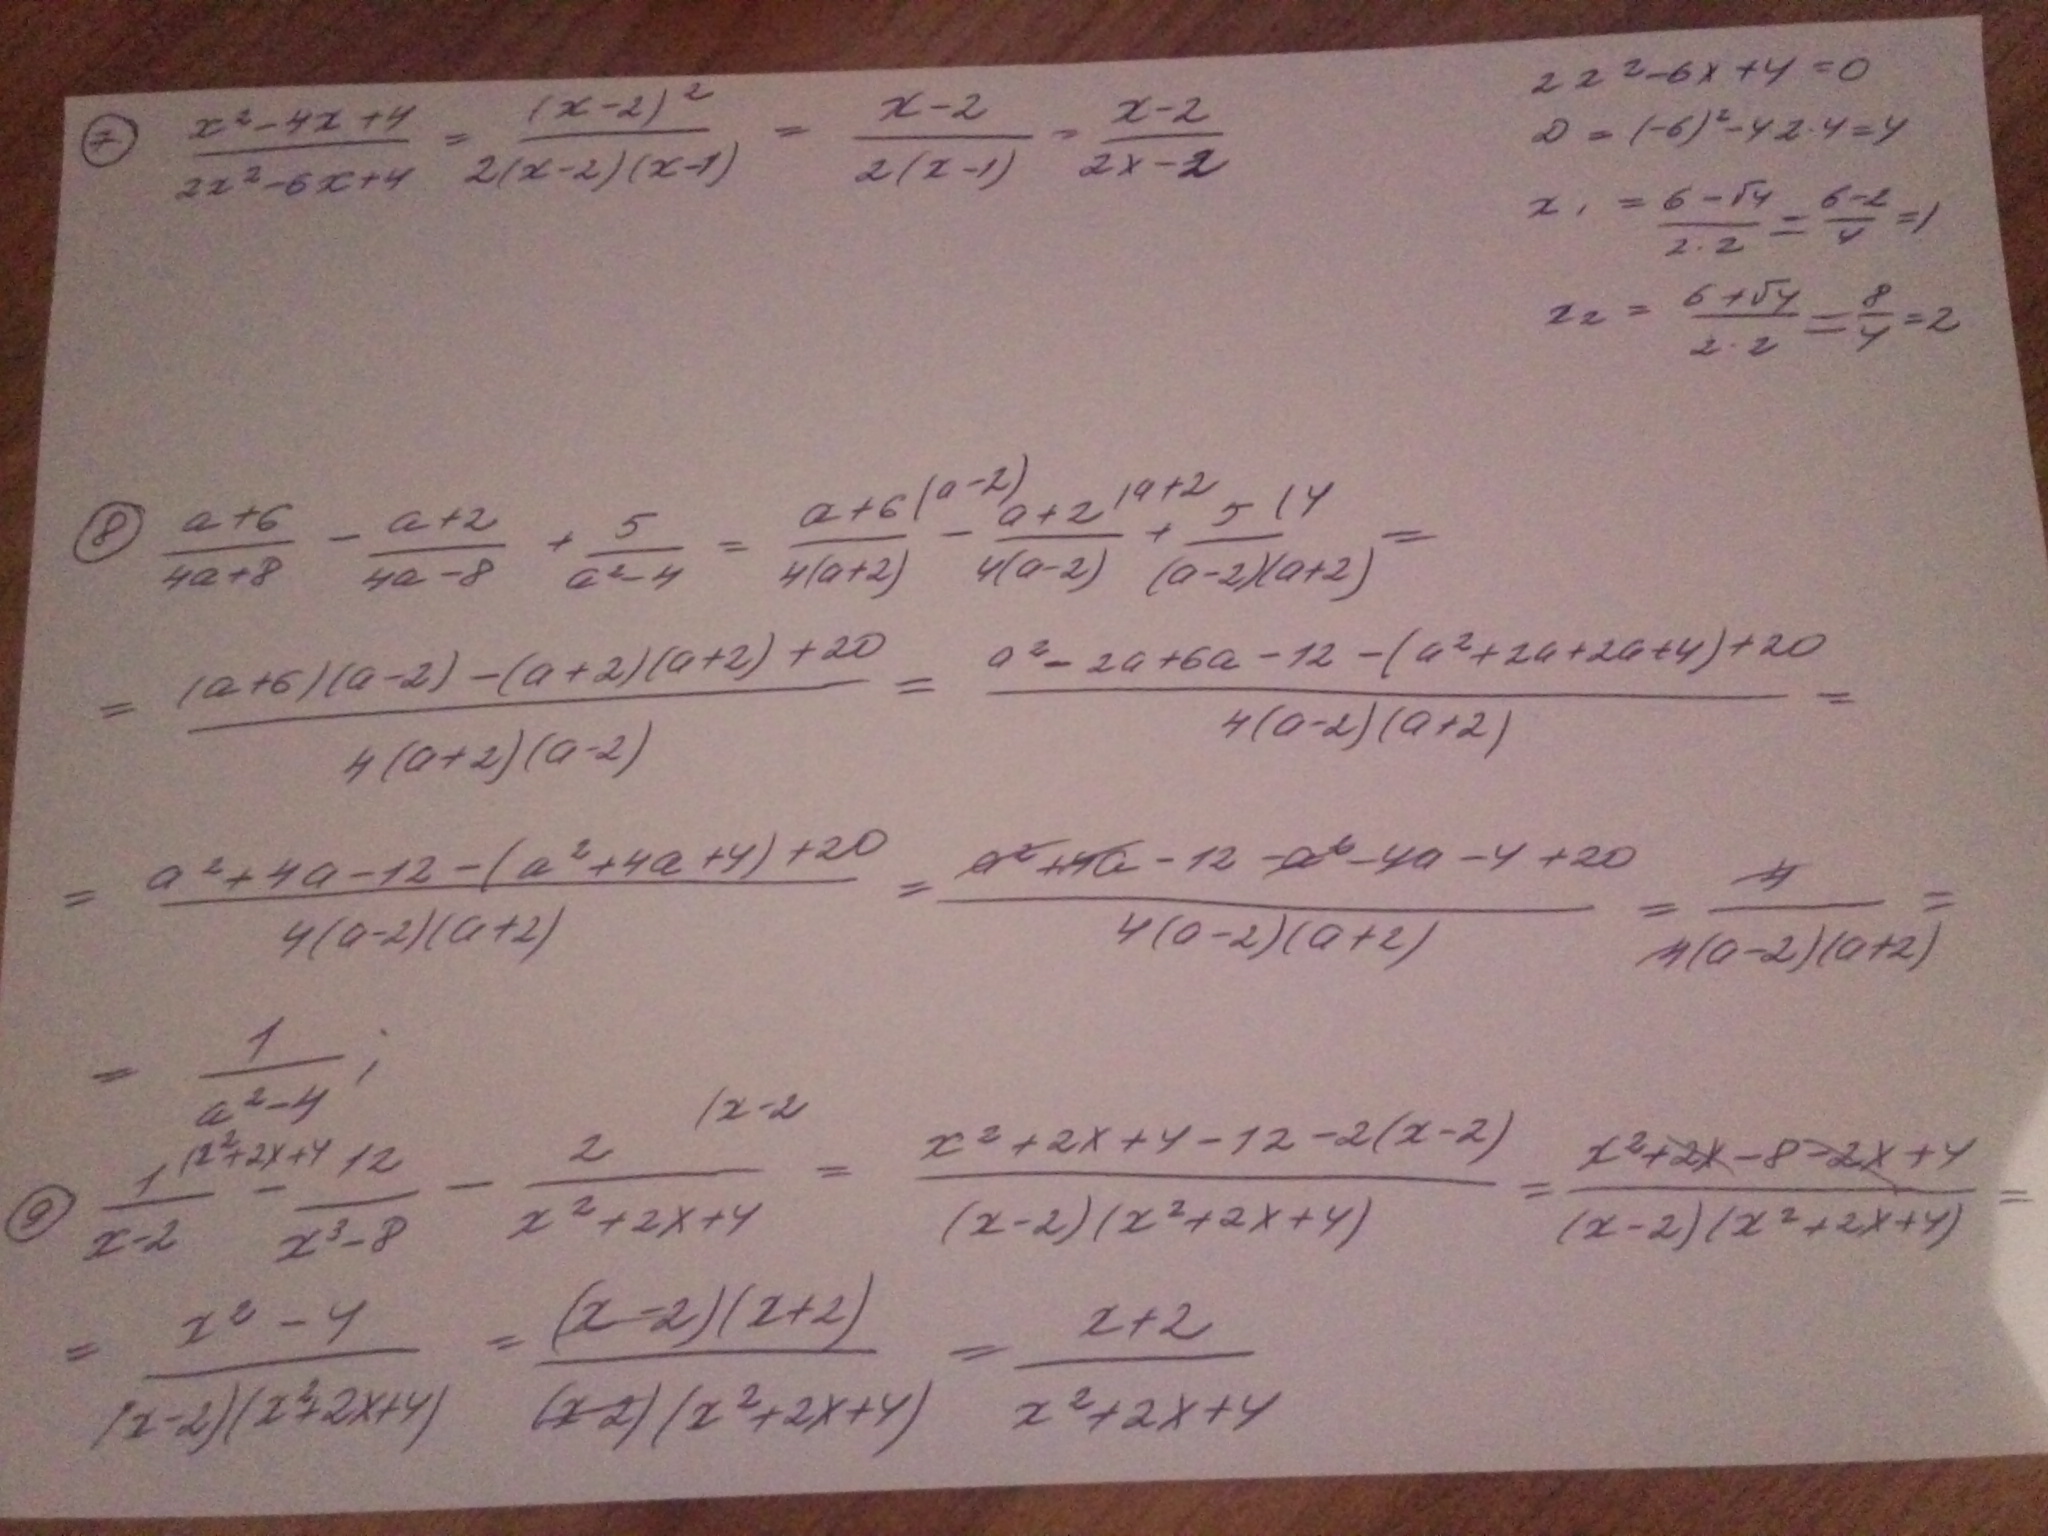 ⑦ (x²-4x+4)/(2x²-6x+4) = (x-2)²/(2(x-2)(x-1)) = (x-2)/(2(x-1)) = (x-2)/(2x-2)
2x²-6x+4=0
D = (-6)²-4·2·4=4
x₁ = (6-√4)/(2·2) = (6-2)/4 = 1
x₂ = (6+√4)/(2·2) = 8/4 = 2
⑧ (a+6)/(4a+8) - (a+2)/(4a-8) + 5/(a²-4) = (a+6 (a-2))/(4(a+2)) - (a+2 (a+2)/(4(a-2)) + (5 (4)/((a-2)(a+2)) =
= ((a+6)(a-2)-(a+2)(a+2)+20)/(4(a+2)(a-2)) = (a²-2a+6a-12-(a²+2a+2a+4)+20)/(4(a-2)(a+2)) =
= (a²+4a-12-(a²+4a+4)+20)/(4(a-2)(a+2)) = (a²+4a-12-a²-4a-4+20)/(4(a-2)(a+2)) = 4/(4(a-2)(a+2)) =
= 1/(a²-4);
⑨ (1 (x²+2x+4)/(x-2) - 12/(x³-8) - (2 (x-2)/(x²+2x+4) = (x²+2x+4-12-2(x-2))/((x-2)(x²+2x+4)) = (x²+2x-8-2x+4)/((x-2)(x²+2x+4)) =
= (x²-4)/((x-2)(x²+2x+4)) = ((x-2)(x+2))/((x-2)(x²+2x+4)) = (x+2)/(x²+2x+4)